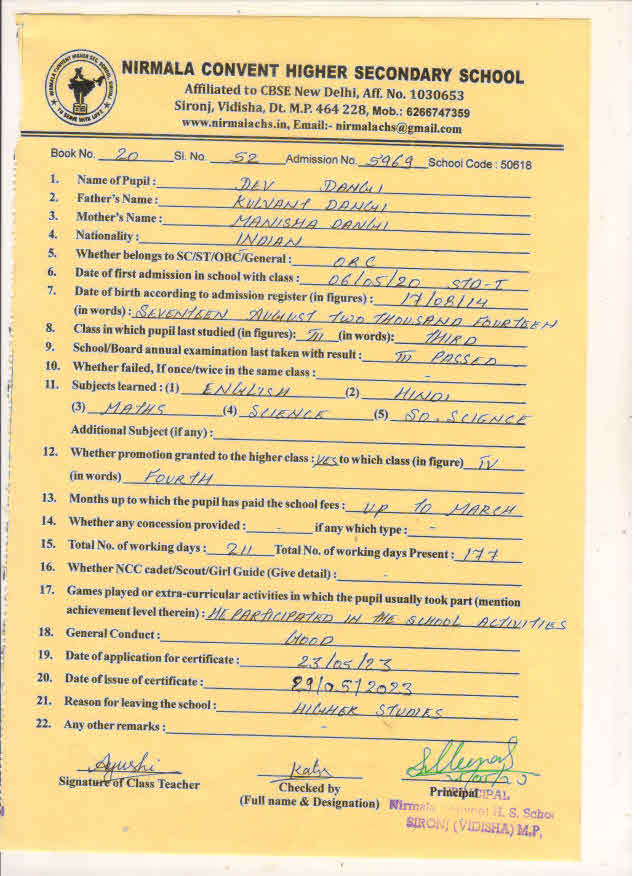 NIRMALA CONVENT HIGHER SEC. SCHOOL, SIRONJ
TO SERVE WITH LOVE
NIRMALA CONVENT HIGHER SECONDARY SCHOOL
Affiliated to CBSE New Delhi, Aff. No. 1030653
Sironj, Vidisha, Dt. M.P. 464 228, Mob.: 6266747359
www.nirmalachs.in, Email:- nirmalachs@gmail.com
Book No. 20 Sl. No. 52 Admission No. 5969 School Code : 50618
1. Name of Pupil : DEV DANGI
2. Father's Name : KULVANT DANGI
3. Mother's Name : MANISHA DANGI
4. Nationality : INDIAN
5. Whether belongs to SC/ST/OBC/General : OBC
6. Date of first admission in school with class : 06/05/20 STD-I
7. Date of birth according to admission register (in figures) : 17/08/14
(in words) : SEVENTEEN AUGUST TWO THOUSAND FOURTEEN
8. Class in which pupil last studied (in figures): III (in words): THIRD
9. School/Board annual examination last taken with result : III PASSED
10. Whether failed, If once/twice in the same class : -
11. Subjects learned : (1) ENGLISH (2) HINDI
(3) MATHS (4) SCIENCE (5) SO. SCIENCE
Additional Subject (if any) :
12. Whether promotion granted to the higher class : YES to which class (in figure) IV
(in words) FOURTH
13. Months up to which the pupil has paid the school fees : UP TO MARCH
14. Whether any concession provided : - if any which type : -
15. Total No. of working days : 211 Total No. of working days Present : 177
16. Whether NCC cadet/Scout/Girl Guide (Give detail) : -
17. Games played or extra-curricular activities in which the pupil usually took part (mention
achievement level therein) : HE PARTICIPATED IN THE SCHOOL ACTIVITIES
18. General Conduct : GOOD
19. Date of application for certificate : 23/05/23
20. Date of issue of certificate : 29/05/2023
21. Reason for leaving the school : HIGHER STUDIES
22. Any other remarks : -
Ayushi
Signature of Class Teacher
Checked by
(Full name & Designation)
Principal
PRINCIPAL
Nirmala Convent H. S. School
SIRONJ (VIDISHA) M.P.